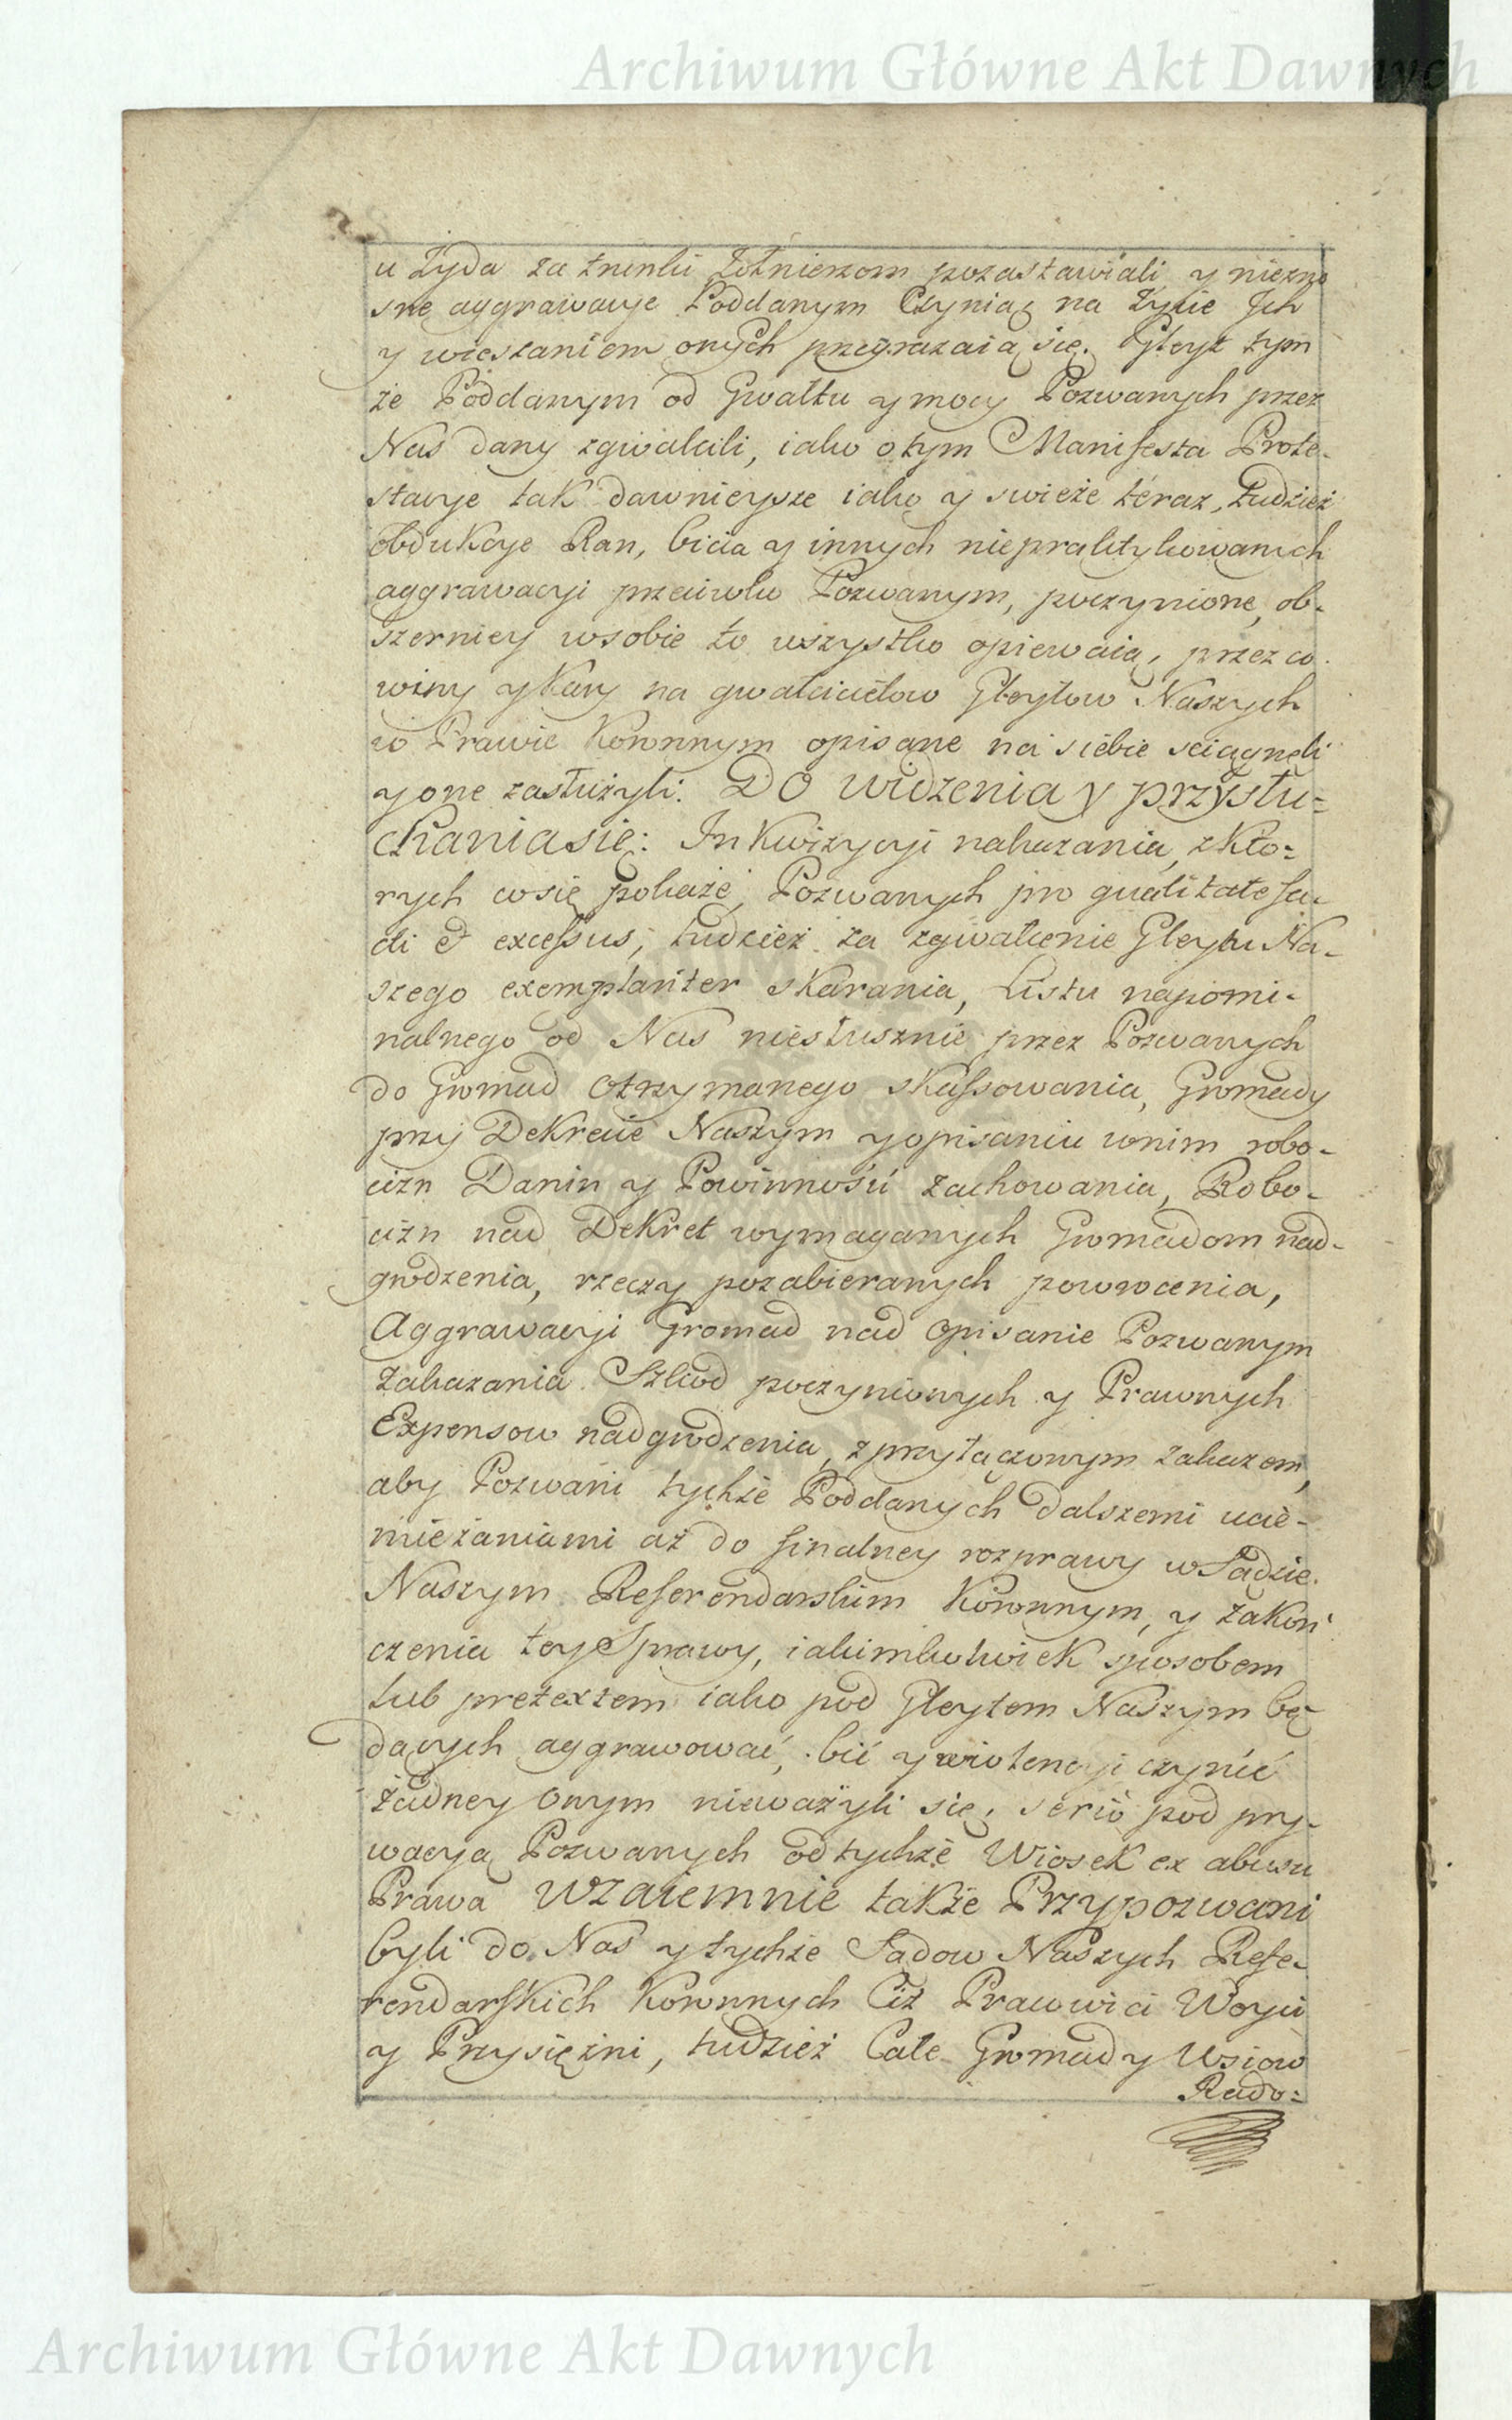 Archiwum Główne Akt Dawnych
u Żyda za trunki Żołnierzom pozastawiali y niezno
sne aggrawacye Poddanym Czyniąc na Życie Jch
y wieszaniem onych przegrazaią się. Gleyt tym
że Poddanym od Gwałtu y mocy Pozwanych przez
Nas dany zgwałcili, iako o tym Manifesta Prote-
stacye tak dawnieysze iako y swieże teraz, tudzież
obdukcye Ran, bicia y innych niepraktykowanych
aggrawacyi przeciwko Pozwanym, poczynione, ob-
szerniey wsobie to wszystko opiewaią, przez co
winy y Kary na gwałcicielow Gleytow Naszych
w Prawie Koronnym opisane na siebie sciągneli
y one zasłużyli. DO widzenia y przysłu=
chania się: Inkwizycyi nakazania, z Kto=
rych co się pokaże, Pozwanych pro qualitate fa-
cti et excessus, tudzież za zgwałcenie Gleytu Na-
szego exemplariter skarania, Listu napomi-
nalnego od Nas niesłusznie przez Pozwanych
do Gromad otrzymanego skassowania, Gromady
przy Dekrecie Naszym y opisaniu wnim robo-
cizn Danin y Powinności zachowania, Robo-
cizn nad Dekret wymaganych Gromadom nad-
grodzenia, rzeczy pozabieranych powrocenia,
Aggrawacyi Gromad nad opisanie Pozwanym
zakazania Szkod poczynionych y Prawnych
Expensow nadgrodzenia, z przyłączonym zakazem,
aby Pozwani tychże Poddanych dalszemi ucie-
mieżaniami aż do finalney rozprawy w Sądzie
Naszym Referendarskim Koronnym, y zakoń
czenia tey Sprawy, iakimkolwiek sposobem
lub pretextem iako pod Gleytem Naszym bę
dących aggrawować, bić y wiolencyi czynić
żadney onym nieważyli się, serio pod pry-
wacyą Pozwanych od tychże Wiosek ex abusu
Prawa WZAIEMNIE także Przypozwani
byli do Nas y tychże Sądow Naszych Refe-
rendarskich Koronnych Ciż Pracowici Woyci
y Przysiężni, tudzież Całe Gromady Wsiow
Rado=
Archiwum Główne Akt Dawnych